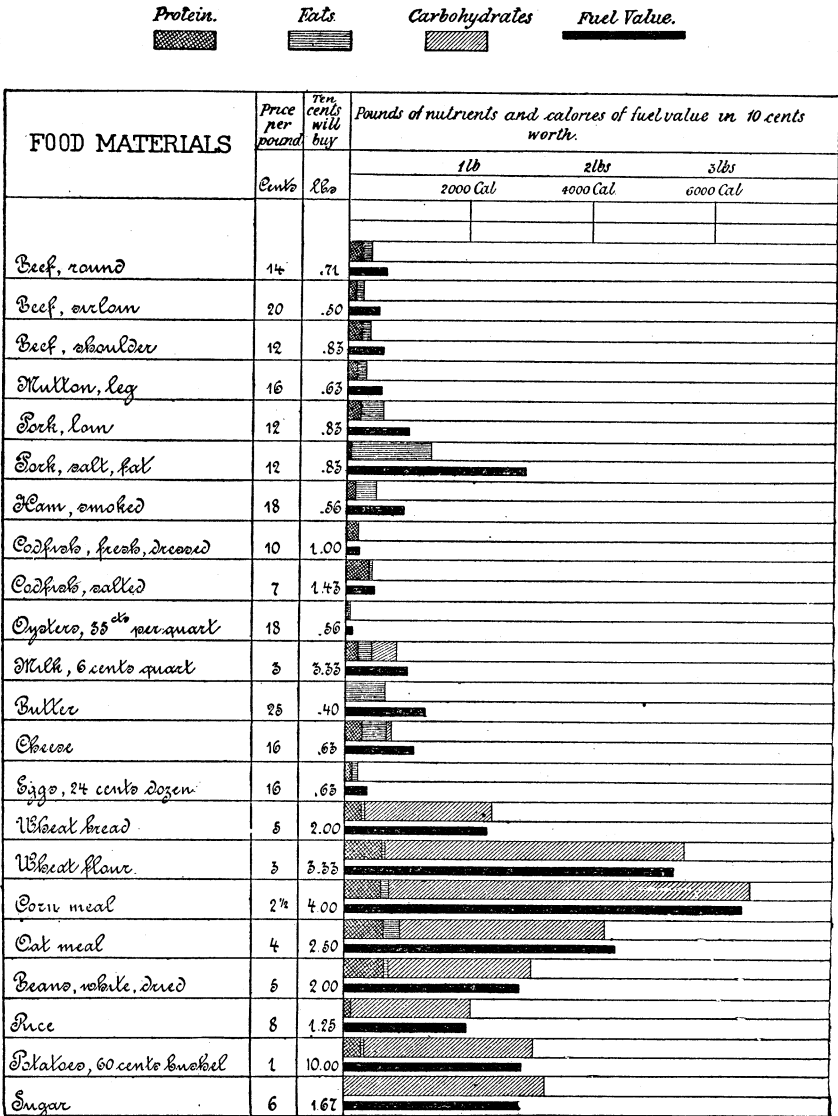 Protein. Fats. Carbohydrates Fuel Value.
FOOD MATERIALS
Price per pound
Ten cents will buy
Pounds of nutrients and calories of fuel value in 10 cents
worth.
Cents lbs
1 lb 2 lbs 3 lbs
2000 Cal 4000 Cal 6000 Cal
Beef, round 14 .71
Beef, sirloin 20 .50
Beef, shoulder 12 .83
Mutton, leg 16 .63
Pork, loin 12 .83
Pork, salt, fat 12 .83
Ham, smoked 18 .56
Codfish, fresh, dressed 10 1.00
Codfish, salted 7 1.43
Oysters, 35 cts per quart 18 .56
Milk, 6 cents quart 3 3.33
Butter 25 .40
Cheese 16 .63
Eggs, 24 cents dozen 16 .63
Wheat bread 5 2.00
Wheat flour. 3 3.33
Corn meal 2 1/2 4.00
Oat meal 4 2.50
Beans, white, dried 5 2.00
Rice 8 1.25
Potatoes, 60 cents bushel 1 10.00
Sugar 6 1.67